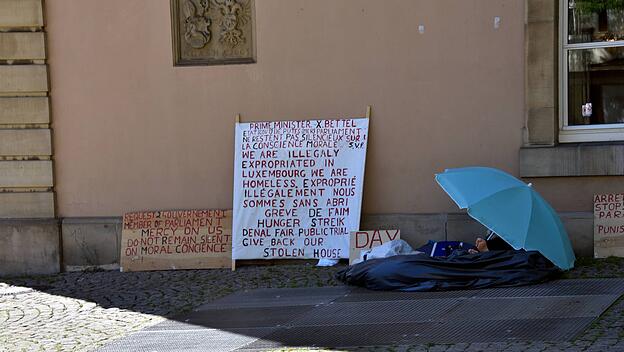 REQUEST 2 GOUVERNEMENT
MEMBER OF PARLIAMENT
MERCY ON US
DO NOT REMAIN SILENT
ON MORAL CONCIENCE
PRIME MINISTER X. BETTEL
PARLAMENT
NE RESTENT PAS SILENCIEUX SUR
LA CONSCIENCE MORALE. S.V.P.
WE ARE ILLEGALY
EXPROPRIATED IN
LUXEMBOURG WE ARE
HOMELESS. EXPROPRIÉ
ILLÉGALEMENT NOUS
SOMMES SANS ABRI
GREVE DE FAIM
HUNGER STREIK
DENAL FAIR PUBLIC TRIAL
GIVE BACK OUR
STOLEN HOUSE
DAY
ARRET
STOP
PAR
PUNIS